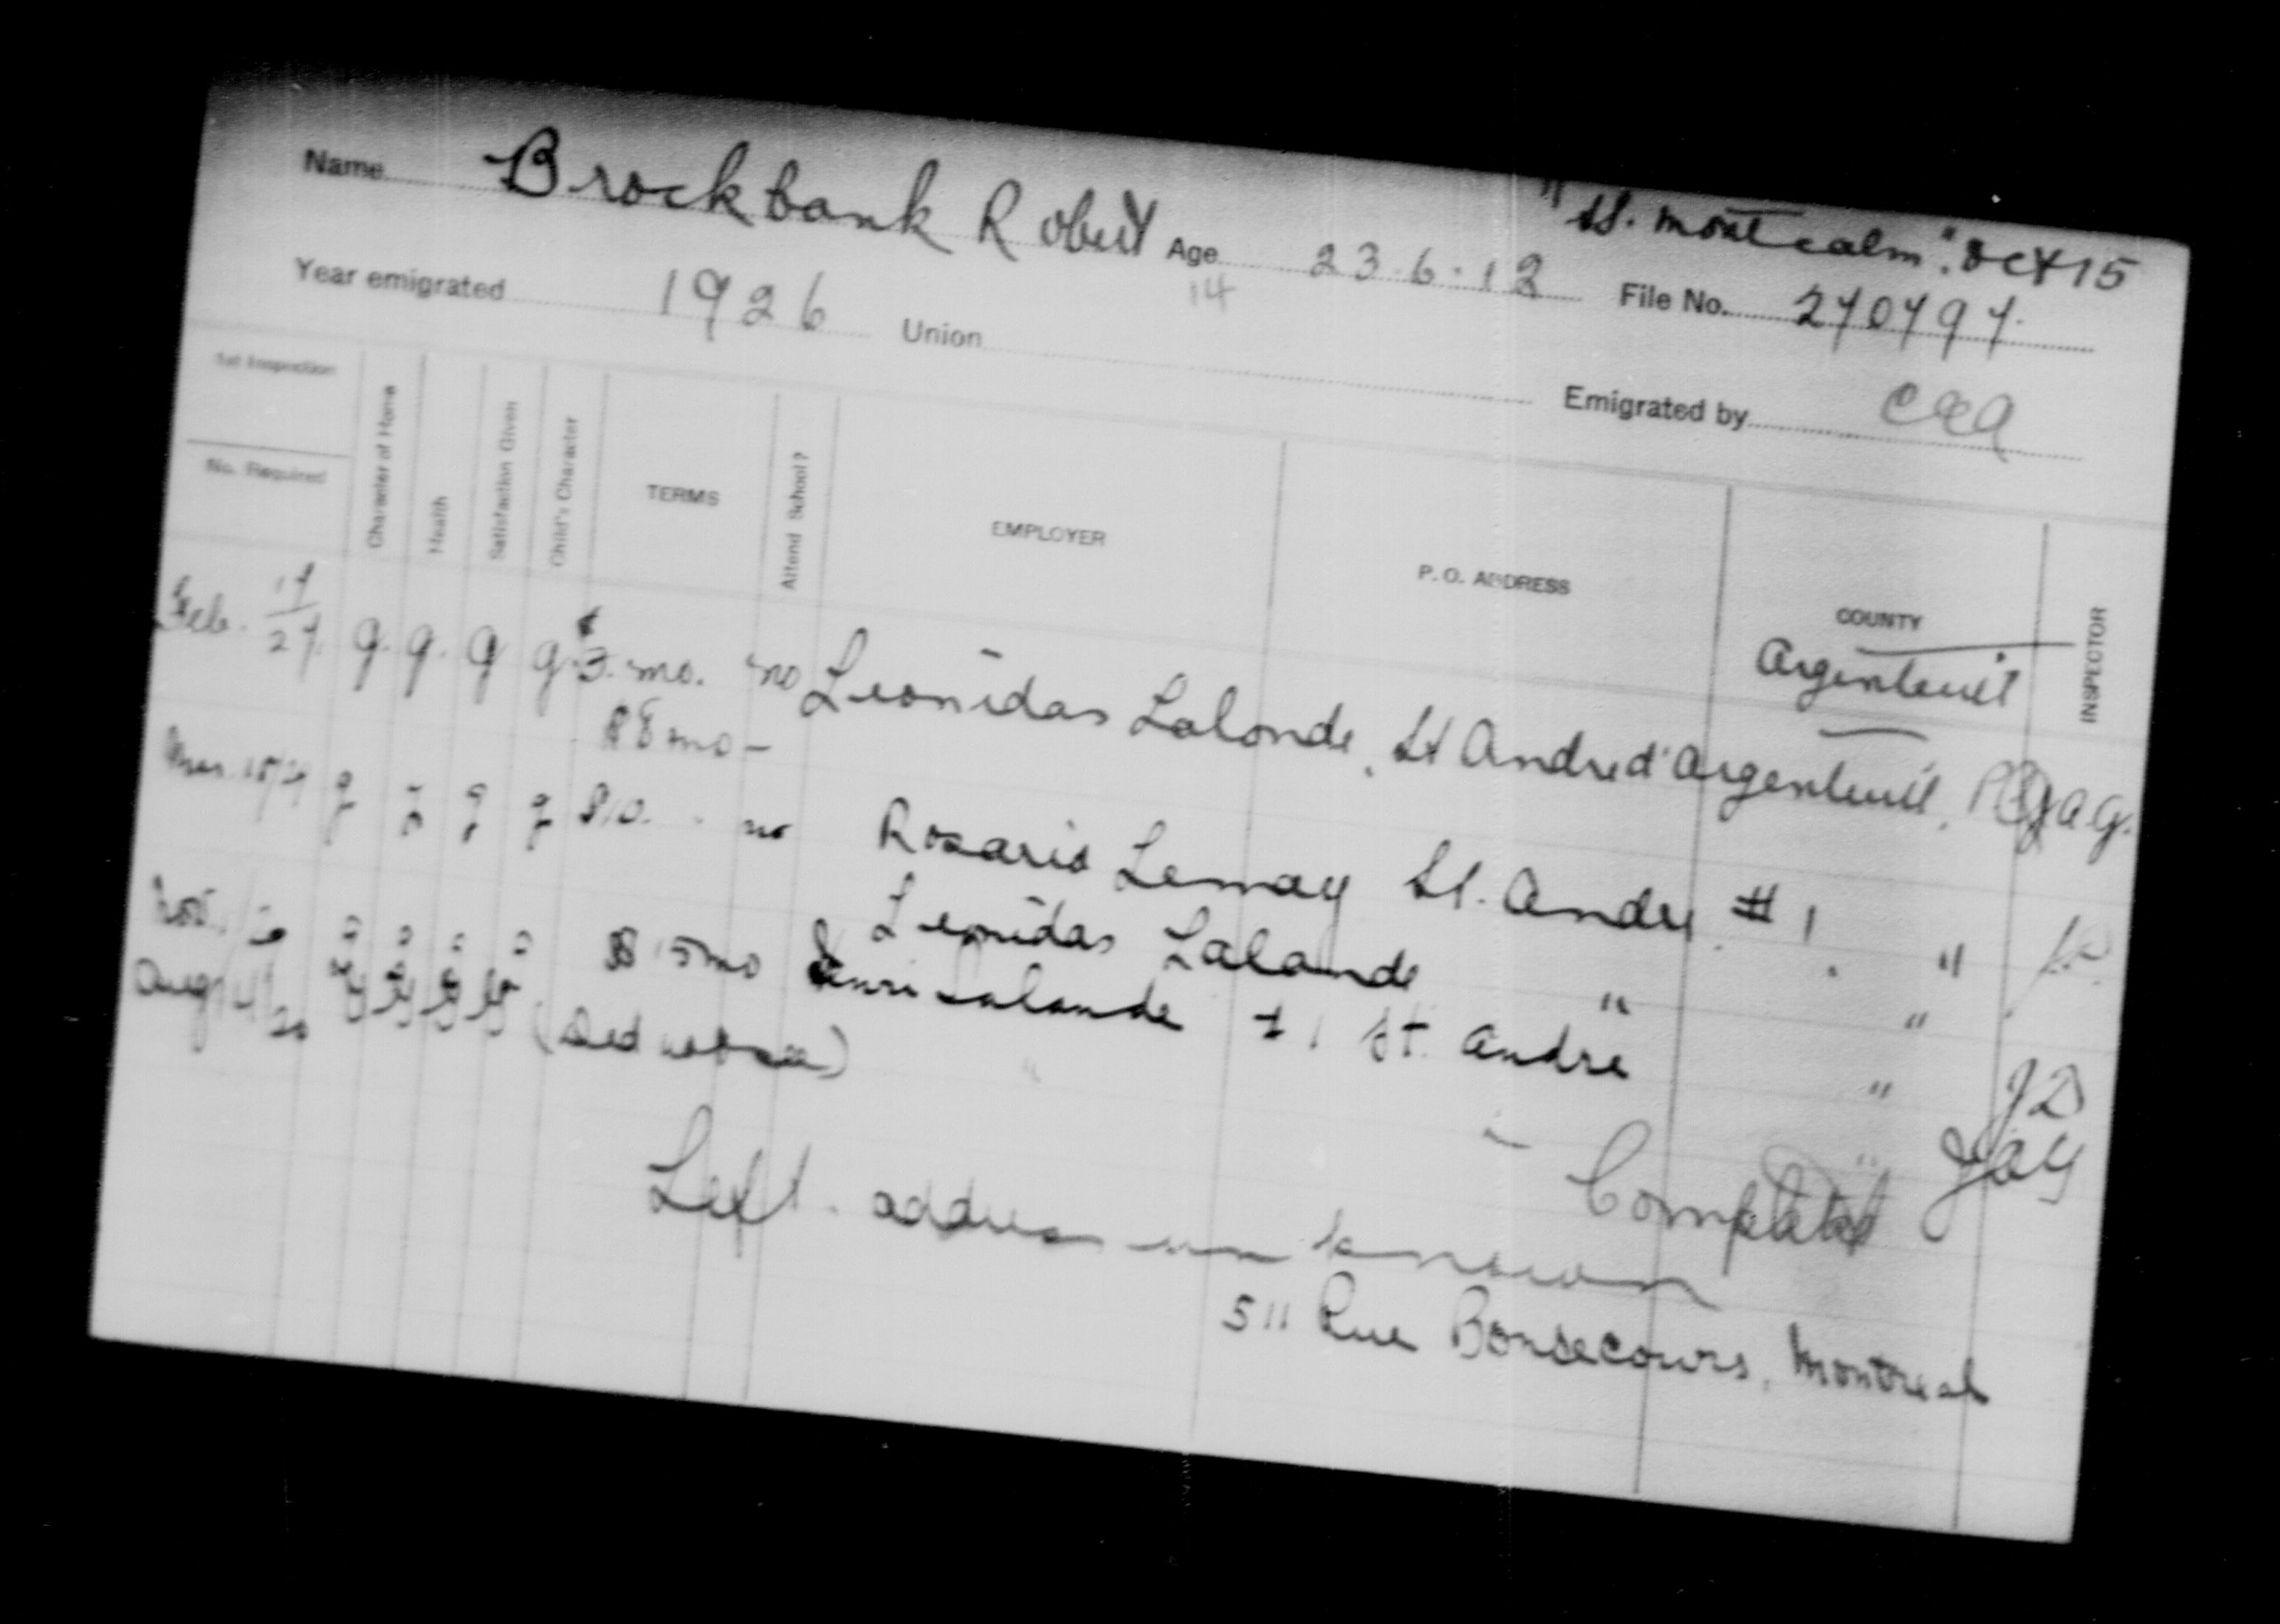 "SS. Montcalm". Oct 15
Name Brockbank Robert Age 23.6.12 File No. 270797
14
Year emigrated 1926 Union Emigrated by
1st Inspection
No. Required Character of Home Health Satisfaction Given Child's Character TERMS Attend School? EMPLOYER P. O. ADDRESS COUNTY INSPECTOR
Argenteuil
Feb. 17/27. g. g. g g. $3. mo. no Leonidas Lalonde, St Andre d'Argenteuil, P.Q. G.A.G.
$8 mo -
Mar. g g g g $10. no Rosario Lemay St. Andre #1. "
Leonidas Lalande " "
$15 mo Henri Lalande #1 St. Andre "
Aug
Completed
Left. address unknown
511 Rue Bonsecours, Montreal